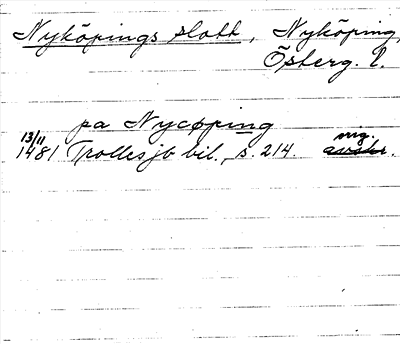 Nyköpings slott, Nyköping,
Österg. l.
pa Nycøping
13/11
1481 Trollesjö bil., s. 214. avskr.
nig.